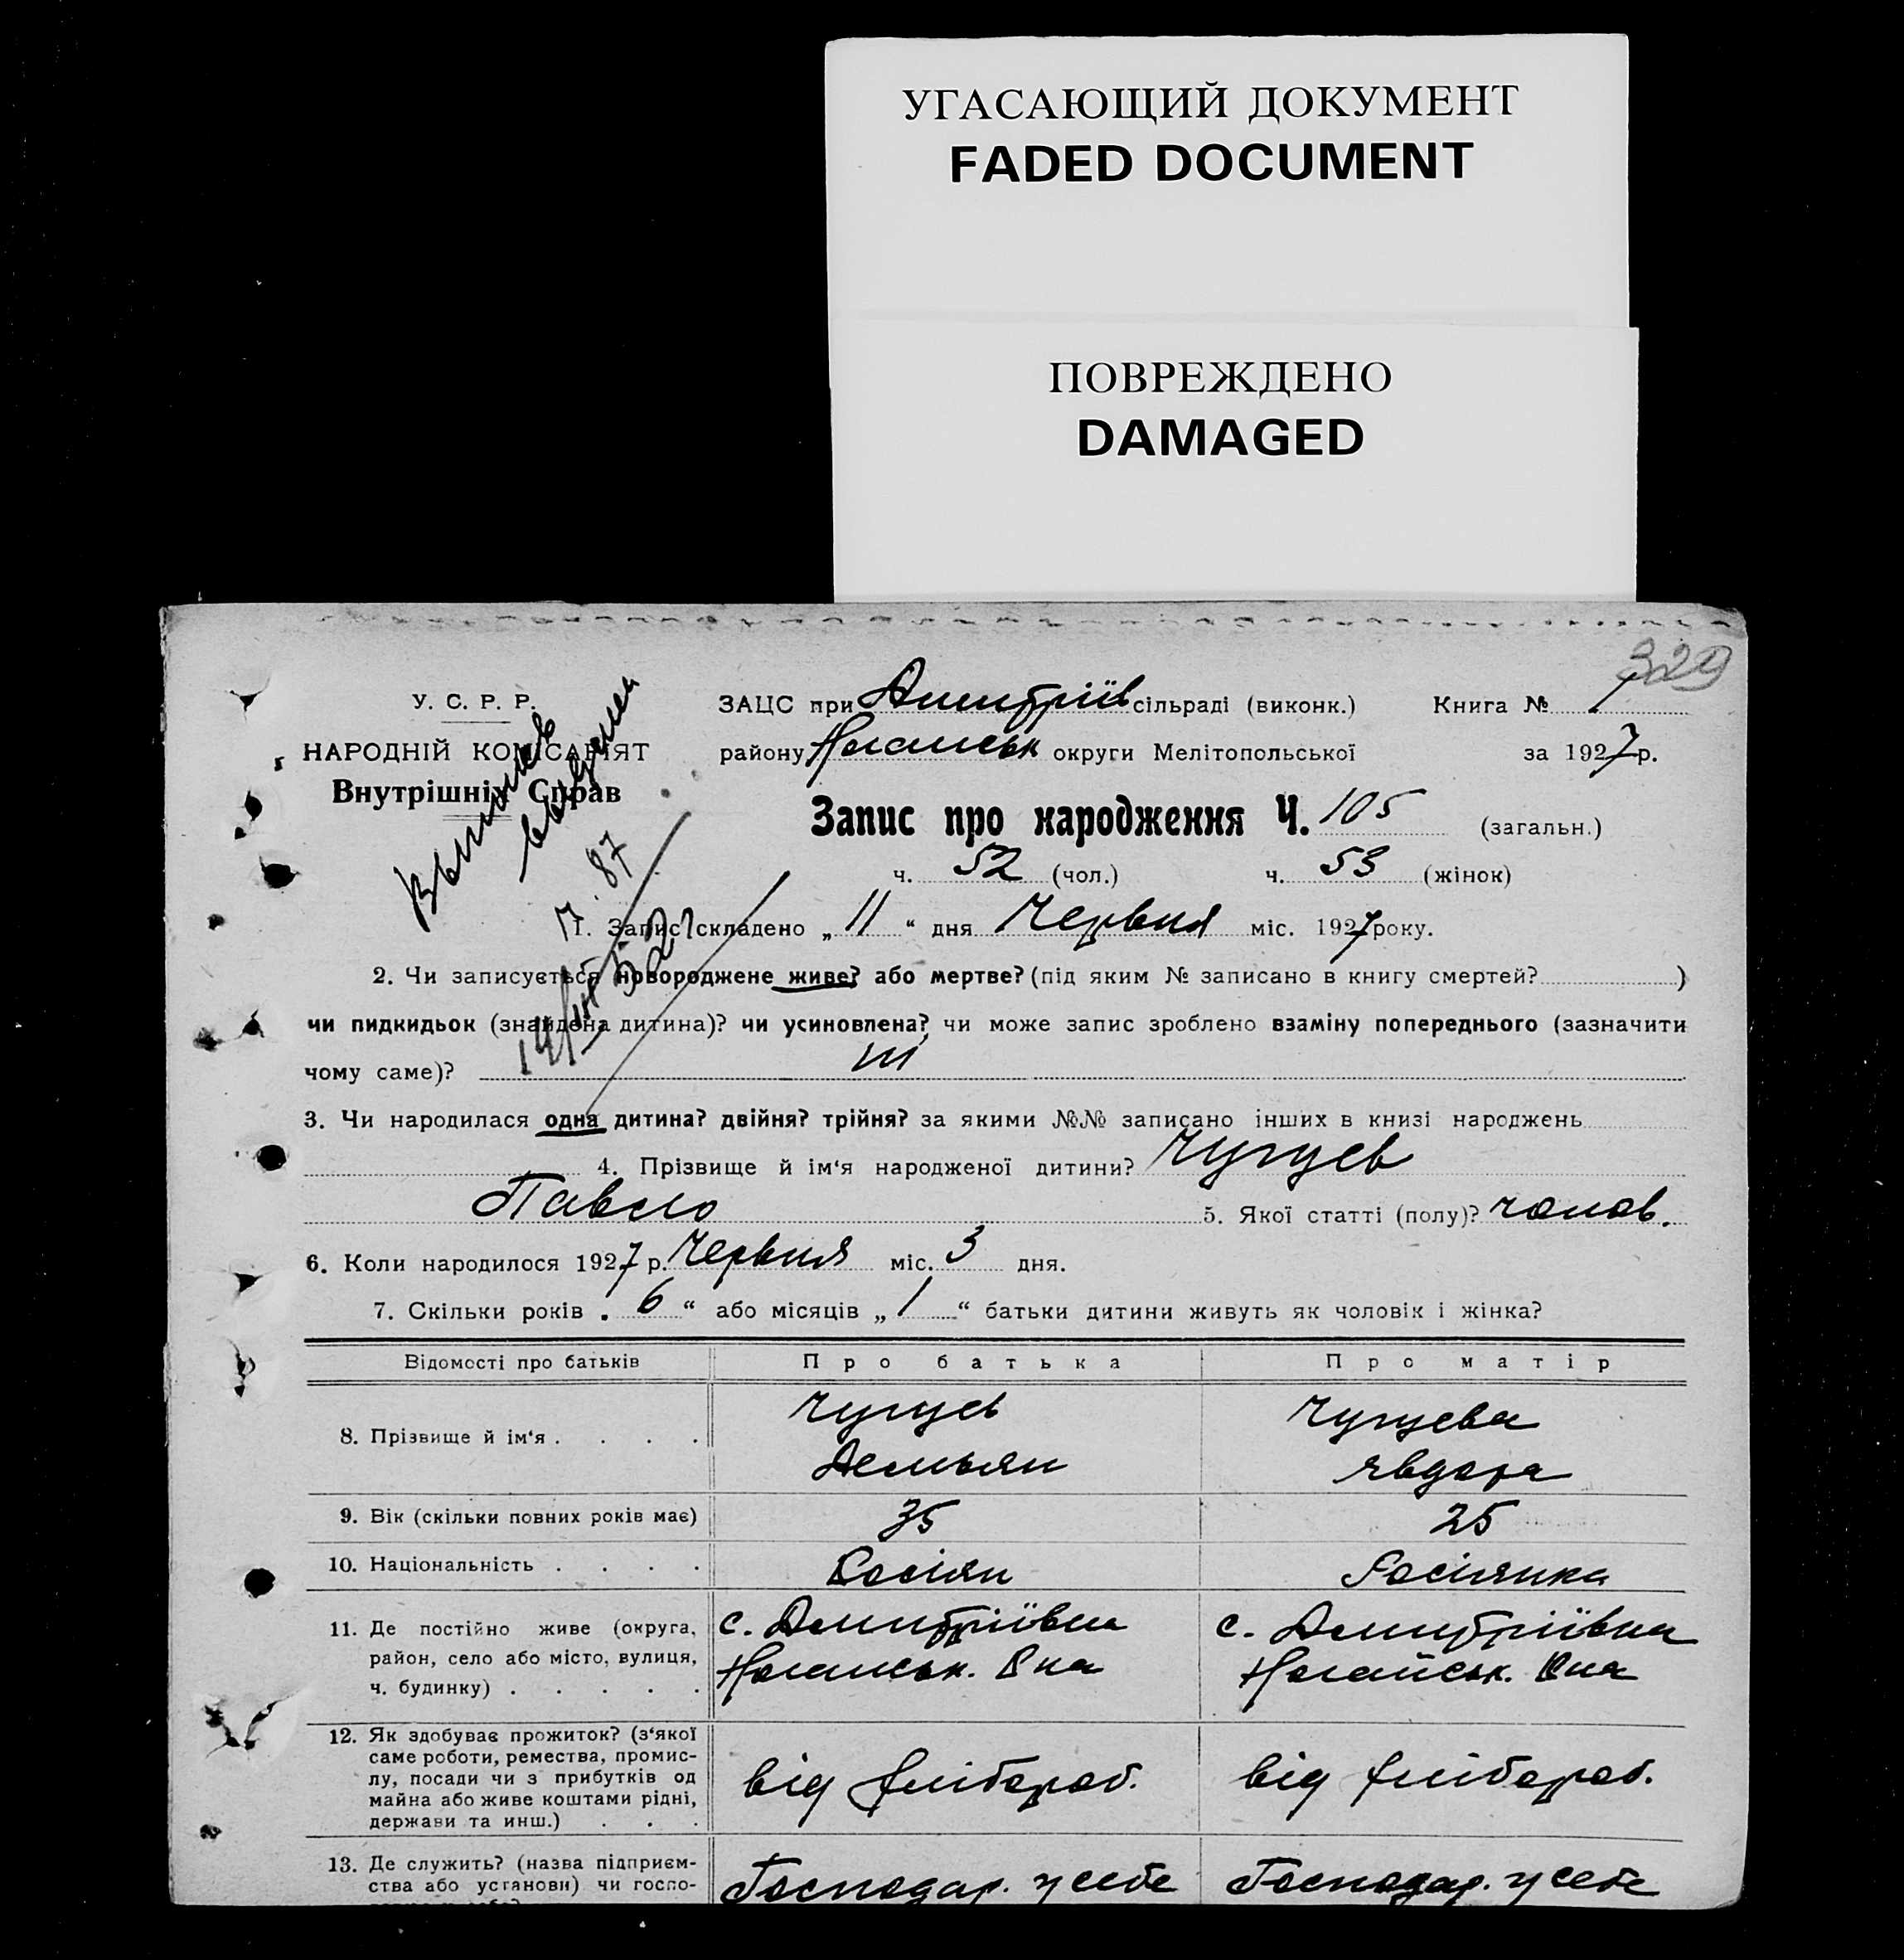 УГАСАЮЩИЙ ДОКУМЕНТ
FADED DOCUMENT
ПОВРЕЖДЕНО
DAMAGED
329
У. С. Р. Р.
НАРОДНІЙ КОМІСАРІЯТ
Внутрішніх Справ
ЗАЦС при Дмитріїв сільраді (виконк.) Книга № 1
району Ногайськ округи Мелітопольської за 1927 р.
Запис про народження Ч. 105 (загальн.)
ч. 52 (чол.) ч. 53 (жінок)
1. Запис складено „ 11 “ дня Червня міс. 1927 року.
2. Чи записується новороджене живе? або мертве? (під яким № записано в книгу смертей? )
чи пидкидьок (знайдена дитина)? чи усиновлена? чи може запис зроблено взаміну попереднього (зазначити
чому саме)?
3. Чи народилася одна дитина? двійня? трійня? за якими №№ записано інших в книзі народжень
4. Прізвище й ім‘я народженої дитини? Чугуєв
Павло 5. Якої статті (полу)? чолов.
6. Коли народилося 1927 р. Червня міс. 3 дня.
7. Скільки років „ 6 “ або місяців „ 1 “ батьки дитини живуть як чоловік і жінка?
Відомості про батьків Про батька Про матір
8. Прізвище й ім‘я . . . . Чугуєв Чугуєва
Демьян Явдоха
9. Вік (скільки повних років має) 35 25
10. Національність . . . . Росіян Росіянка
11. Де постійно живе (округа, с. Дмитріївка с. Дмитріївка
район, село або місто, вулиця, Ногайськ. Р-на Ногайськ. Р-на
ч. будинку) . . . . .
12. Як здобуває прожиток? (з‘якої
саме роботи, ремества, промис-
лу, посади чи з прибутків од від хлібороб. від хлібороб.
майна або живе коштами рідні,
держави та инш.) . . .
13. Де служить? (назва підприєм- Господар. у себе Господар. у себе
ства або установи) чи госпо-